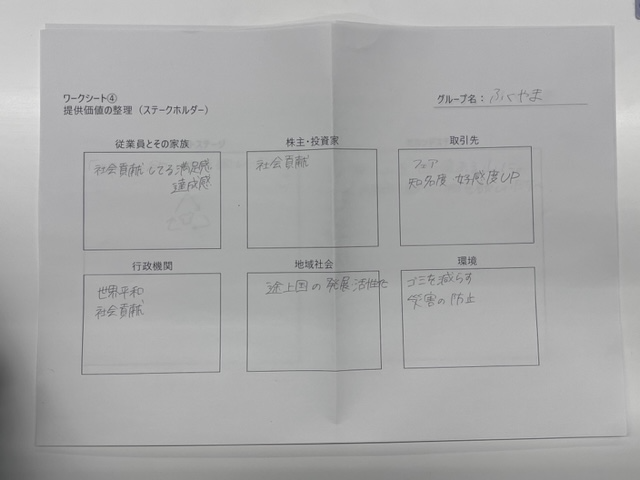 ワークシート④
提供価値の整理（ステークホルダー）
グループ名：ふくやま
従業員とその家族
社会貢献してる満足感
達成感
株主・投資家
社会貢献
取引先
フェア
知名度 好感度UP
行政機関
世界平和
社会貢献
地域社会
途上国の発展活性化
環境
ゴミを減らす
災害の防止